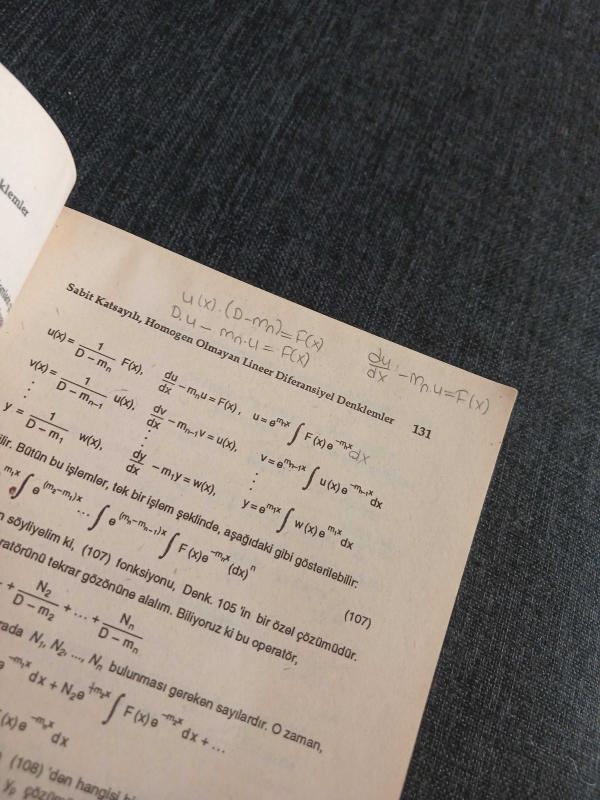 klemler
u(x).(D-mₙ)=F(x)
D.u - mₙ.u = F(x)
du/dx - mₙ.u = F(x)
Sabit Katsayılı, Homogen Olmayan Lineer Diferansiyel Denklemler 131
u(x) = 1/(D - mₙ) F(x), du/dx - mₙu = F(x), u = e^{mₙx} ∫ F(x) e^{-mₙx} dx
v(x) = 1/(D - mₙ₋₁) u(x), dv/dx - mₙ₋₁v = u(x), v = e^{mₙ₋₁x} ∫ u(x) e^{-mₙ₋₁x} dx
⋮ ⋮ ⋮
y = 1/(D - m₁) w(x), dy/dx - m₁y = w(x), y = e^{m₁x} ∫ w(x) e^{m₁x} dx
Bütün bu işlemler, tek bir işlem şeklinde, aşağıdaki gibi gösterilebilir:
∫ e^{(m₂-m₁)x} ... ∫ e^{(mₙ-mₙ₋₁)x} ∫ F(x)e^{-mₙx} (dx)ⁿ (107)
söyliyelim ki, (107) fonksiyonu, Denk. 105 'in bir özel çözümüdür.
tekrar gözönüne alalım. Biliyoruz ki bu operatör,
+ N₂/(D - m₂) + ... + Nₙ/(D - mₙ)
N₁, N₂, ..., Nₙ bulunması gereken sayılardır. O zaman,
e^{-m₁x} dx + N₂e^{m₂x} ∫ F(x) e^{-m₂x} dx + ...
(x) e^{-mₙx} dx
(108) 'den hangisi